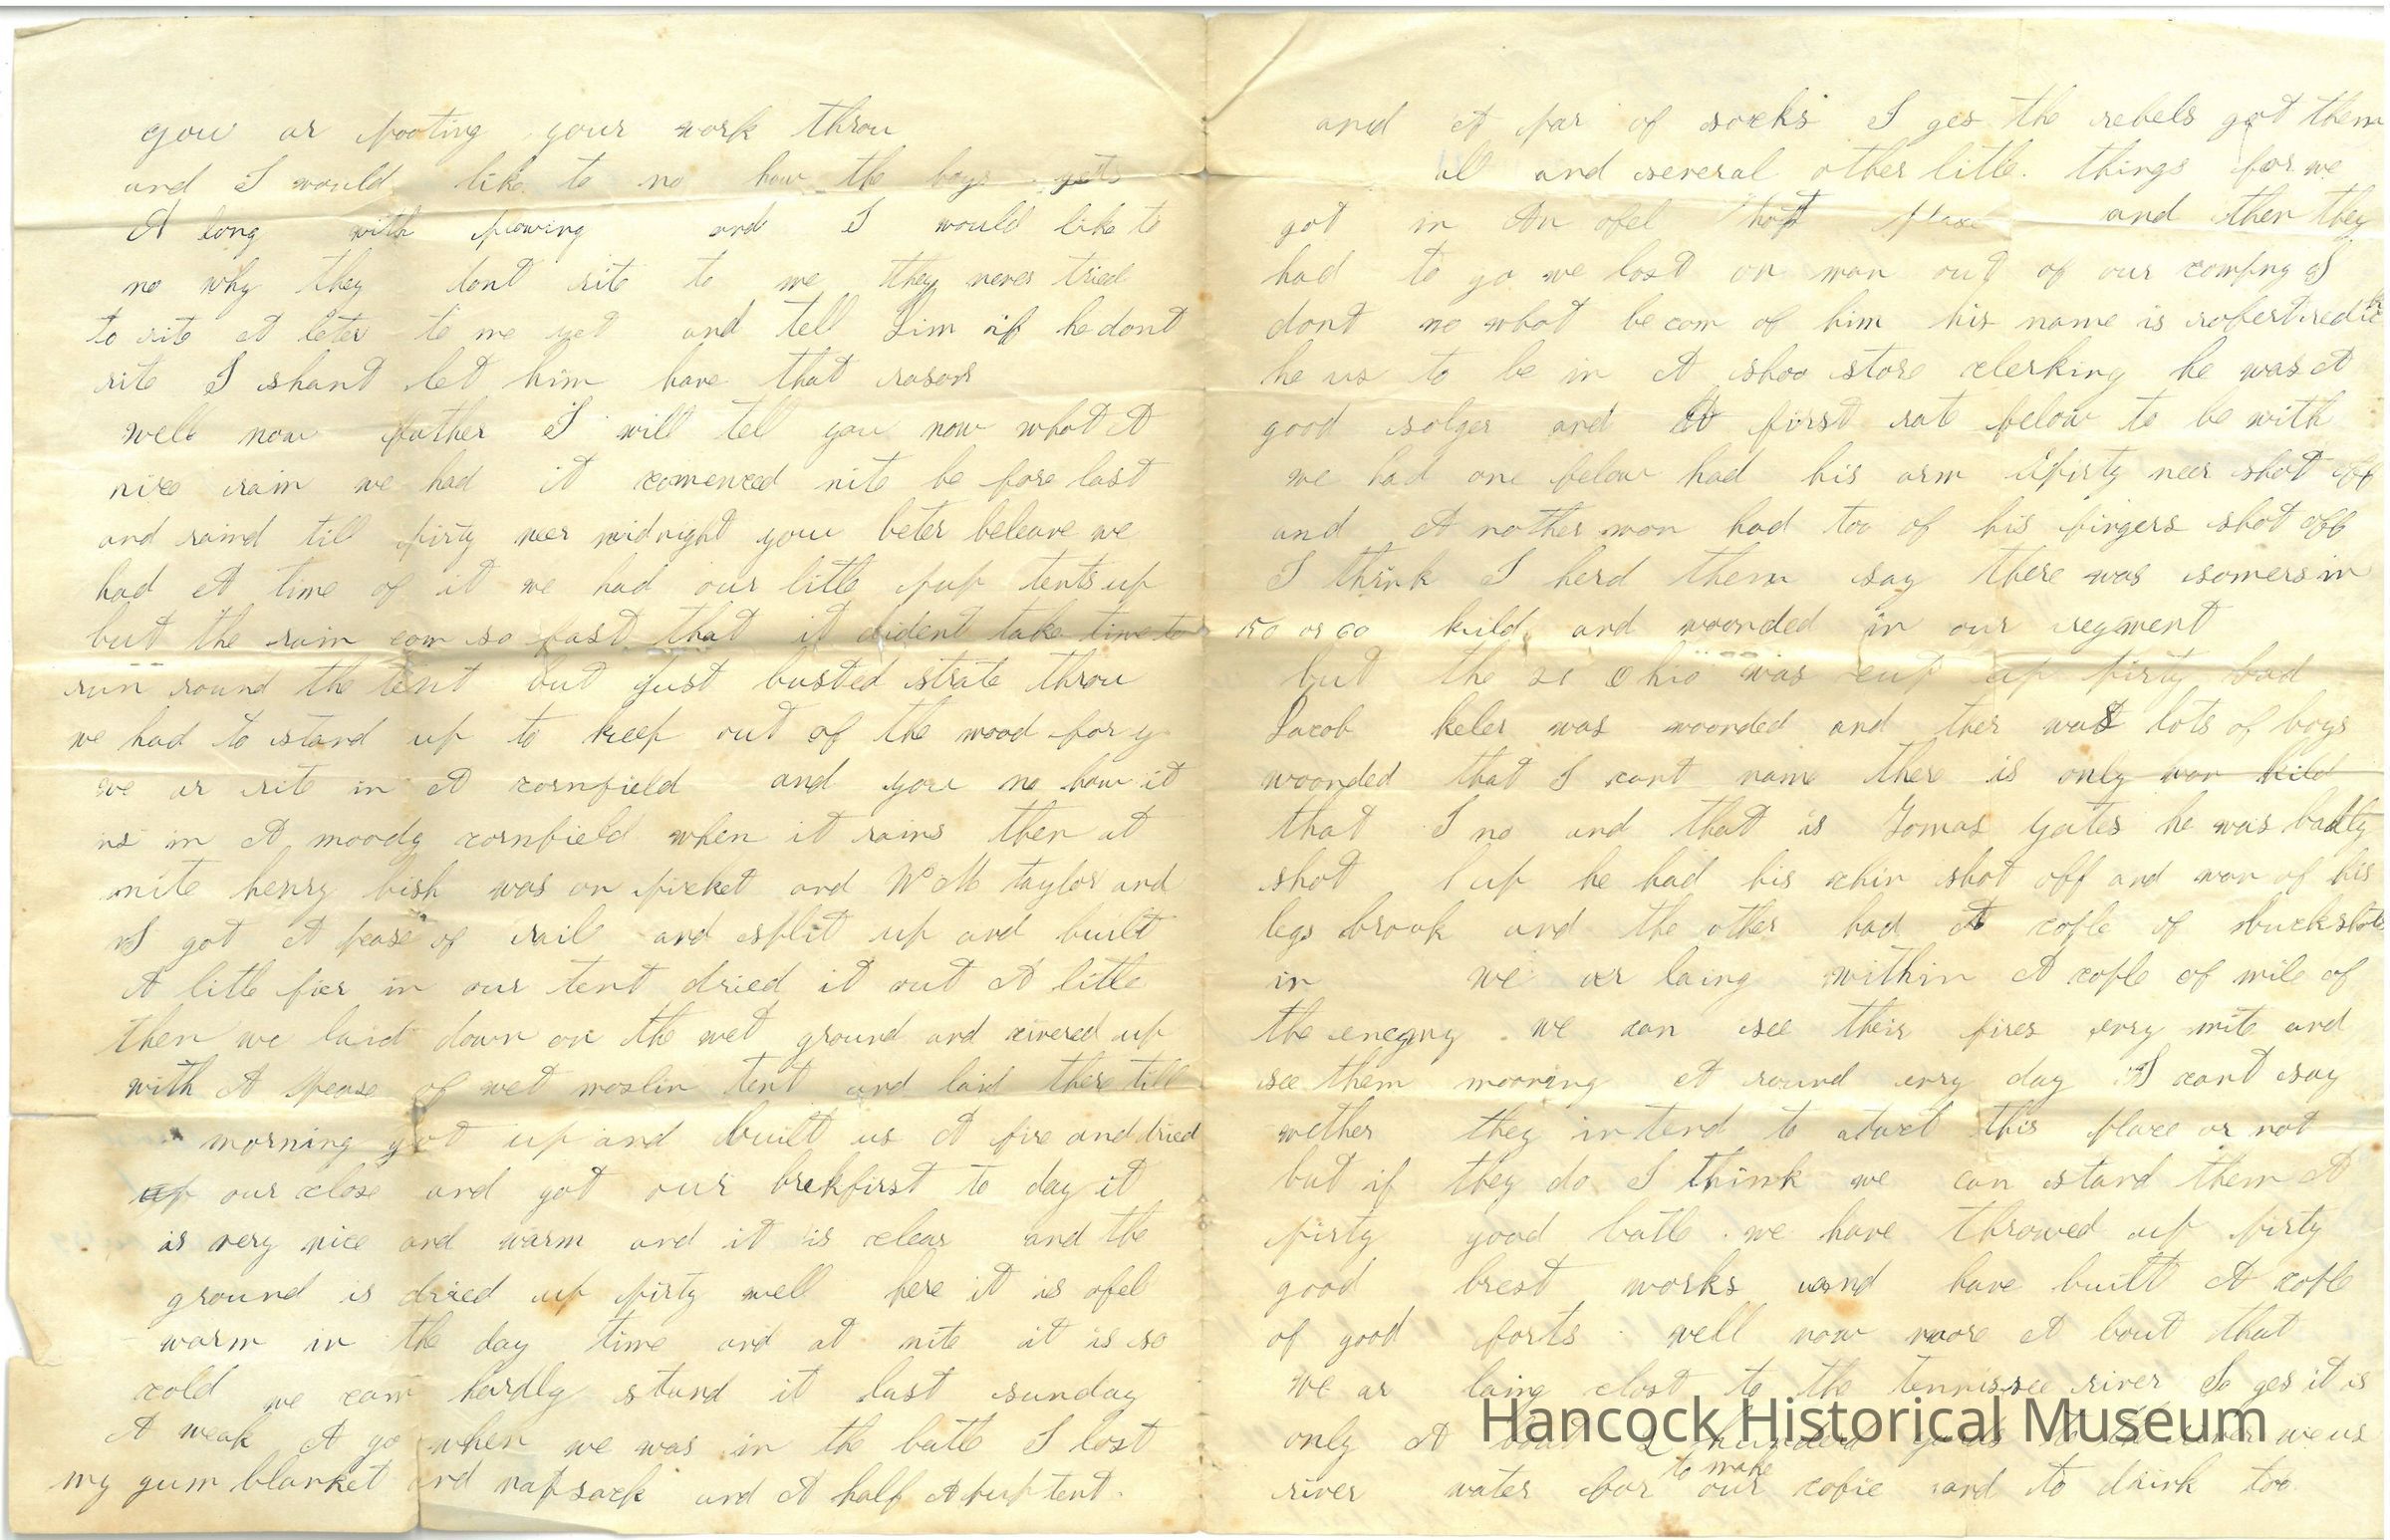 you ar pooting your work throu
and I would like to no how the boys gets
A long with plowing and I would like to
no why they dont rite to me they never tried
to rite A leter to me yet and tell Jim if he dont
rite I shant let him have that rasors
well now father I will tell you now what A
nice rain we had it comenced nite be fore last
and raind till pirty neer midnight you beter beleave we
had A time of it we had our litle pup tents up
but the rain com so fast that it dident take time to
run round the tent but just busted strate throu
we had to stand up to keep out of the mood for
we ar rite in A cornfield and you no how it
is in A moody cornfield when it rains then at
nite henry bish was on picket and Wm taylor and
I got A pease of rail and split up and built
A litle fier in our tent dried it out A litle
then we laid down on the wet ground and civered up
with A pease of wet moslin tent and laid there till
morning got up and built us A fire and dried
up our close and got our brekfirst to day it
is very nice and warm and it is clear and the
ground is dried up pirty well here it is ofel
warm in the day time and at nite it is so
cold we can hardly stand it last sunday
A weak A go when we was in the batle I lost
my gum blanket and napsack and A half A pup tent.
and A par of socks I ges the rebels got them
all and several other litle things for we
got in An ofel hot place and then they
had to go we lost on man out of our compny I
dont no what be com of him his name is robert
he us to be in A shoo store clerking he was A
good solger and A first rat felow to be with
we had one felow had his arm pirty neer shot off
and A nother mon had too of his fingers shot off
I think I herd them say there was somers in
50 or 60 kild and woonded in our regment
but the 21 Ohio was cut up pirty bad
Jacob keler was woonded and ther was lots of boys
woonded that I cant name there is only won kild
that I no and that is Tomas Yates he was badly
shot up he had his chin shot off and won of his
legs brook and the other had A cople of buckshots
in we ar laing within A cople of mile of
the enemy we can see their fires evry nite and
see them mooving A round evry day I cant say
wether they intend to atact this place or not
but if they do I think we can stand them A
pirty good batle we have throwed up pirty
good brest works and have built A cople
of good forts well now more A bout that
we ar laing clost to the tennissee river I ges it is
only A bout 2 hunderd yards to the river we us
river water for to make our cofie and to drink too
Hancock Historical Museum